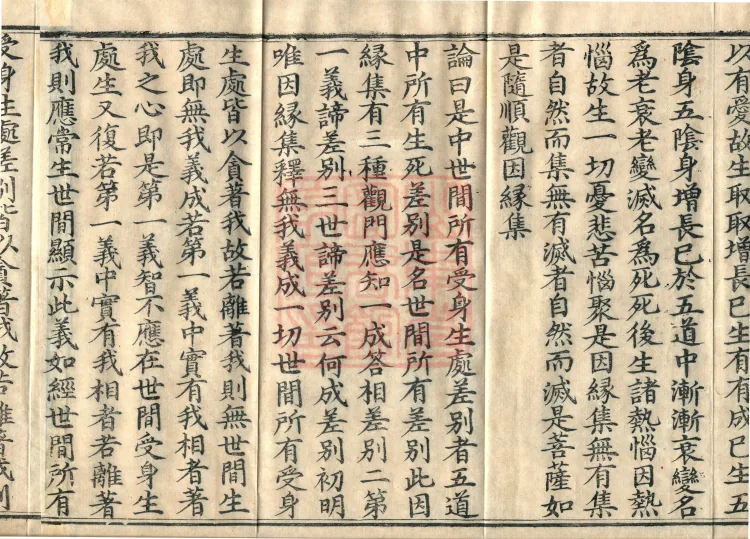 以有愛故生取取增長已生有有成已生五
陰身五陰身增長已於五道中漸漸衰變名
為老衰老變滅名為死死後生諸熱惱因熱
惱故生一切憂悲苦惱聚是因緣集無有集
者自然而集無有滅者自然而滅是菩薩如
是隨順觀因緣集
論曰是中世間所有受身生處差別者五道
中所有生死差別是名世間所有差別此因
緣集有三種觀門應知一成答相差別二第
一義諦差別三世諦差別云何成差別初明
唯因緣集釋無我義成一切世間所有受身
生處皆以貪著我故若離著我則無世間生
處即無我義成若第一義中實有我相者著
我之心即是第一義智不應在世間受身生
處生又復若第一義中實有我相者若離著
我則應常生世間顯示此義如經世間所有
受身生處差別皆以貪著我故若離著我則